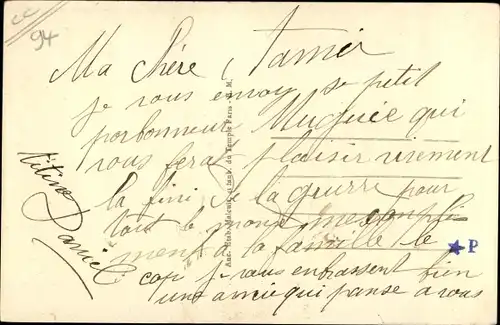 cc
94
Ma Chère Tamier
je vous envoy se petit
porbonneur Muguée qui
vous feras plaisir vivement
la fini de la guerre pour
tout le monde mes conpli
ment a la famille le
cop je vous enbrassent bien
une amie qui panse a vous
titine
Daniel
du Temple Paris
★ P